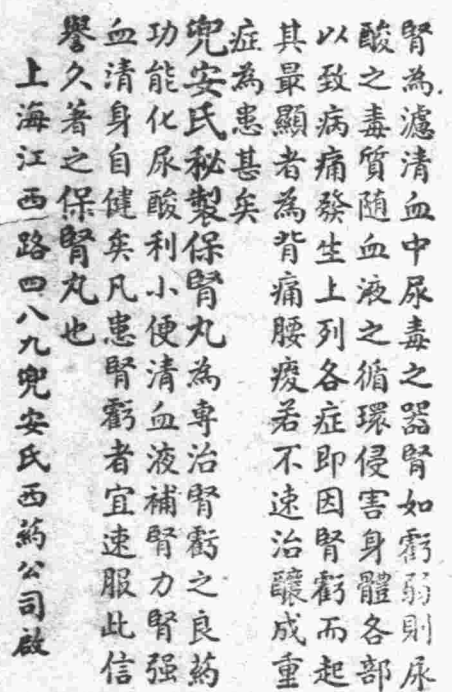 腎為濾清血中尿毒之器腎如虧弱則尿
酸之毒質隨血液之循環侵害身體各部
以致病痛發生上列各症即因腎虧而起
其最顯者為背痛腰痠若不速治釀成重
症為患甚矣
兜安氏秘製保腎丸為專治腎虧之良药
功能化尿酸利小便清血液補腎力腎强
血清身自健矣凡患腎虧者宜速服此信
譽久著之保腎丸也
上海江西路四八九兜安氏西药公司啟